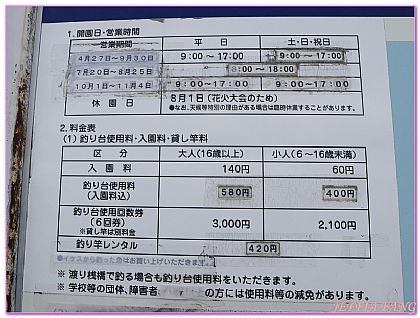 1.開園日・営業時間
営業期間 平日 土・日・祝日
4月27日～9月30日 9:00～17:00 9:00～17:00
7月20日～8月25日 8:00～18:00
10月1日～11月4日 9:00～17:00 9:00～17:00
休園日 8月1日(花火大会のため)
●なお、天候等特別の理由がある場合は臨時休業することがあります。
2.料金表
(1)釣り台使用料・入園料・貸し竿料
区分 大人(16歳以上) 小人(6～16歳未満)
入園料 140円 60円
釣り台使用料
(入園料込) 580円 400円
釣り台使用回数券
(6回券) 3,000円 2,100円
※貸し竿は別料金
釣り竿レンタル 420円
●イケスから釣った魚はお買い上げいただきます。
※ 渡り桟橋で釣る場合も釣り台使用料をいただきます。
※ 学校等の団体、障害者 の方には使用料等の減免があります。